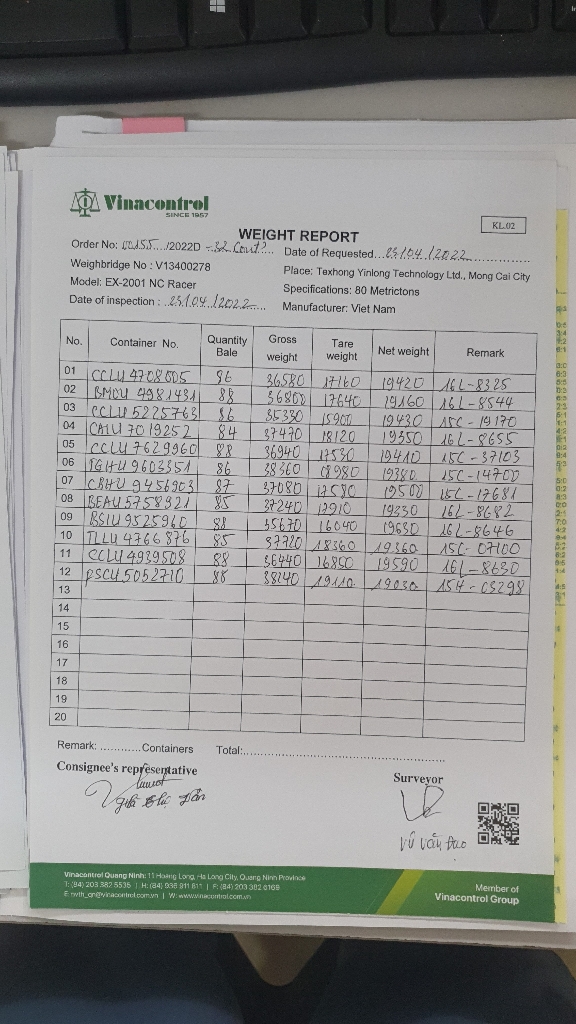 Vinacontrol
SINCE 1957
KL.02
WEIGHT REPORT
Order No: 00155 /2022D - 32 Cont? Date of Requested 23/04/2022
Weighbridge No : V13400278 Place: Texhong Yinlong Technology Ltd., Mong Cai City
Model: EX-2001 NC Racer Specifications: 80 Metrictons
Date of inspection : 23/04/2022 Manufacturer: Viet Nam
No. Container No. Quantity Bale Gross weight Tare weight Net weight Remark
01 CCLU 4708605 86 36580 17160 19420 16L-8325
02 BMOU 4981431 88 36800 17640 19160 16L-8544
03 CCLU 5225763 86 35330 15900 19430 15C-19170
04 CAIU 7019252 84 37470 18120 19350 16L-8655
05 CCLU 7629960 88 36940 17530 19410 15C-37103
06 9603351 86 38360 18980 19380 15C-14700
07 CBHU 9456903 87 37080 17580 19500 15C-17681
08 BEAU 5758321 85 37240 17910 19330 16L-8682
09 BSIU 9525960 88 35670 16040 19630 16L-8646
10 TLLU 4766876 85 37720 18360 19360 15C-07100
11 CCLU 4939508 88 36440 16850 19590 16L-8630
12 PSCU 5052710 88 38140 19110 19030 15H-03298
13
14
15
16
17
18
19
20
Remark: ............Containers Total:..............................
Consignee's representative Surveyor
Vũ Văn Đạo
Vinacontrol Quang Ninh: 11 Hoang Long, Ha Long City, Quang Ninh Province
T: (84) 203 382 5535 | H: (84) 936 911 811 | F: (84) 203 382 6169
E: nvth_qn@vinacontrol.com.vn | W: www.vinacontrol.com.vn
Member of
Vinacontrol Group